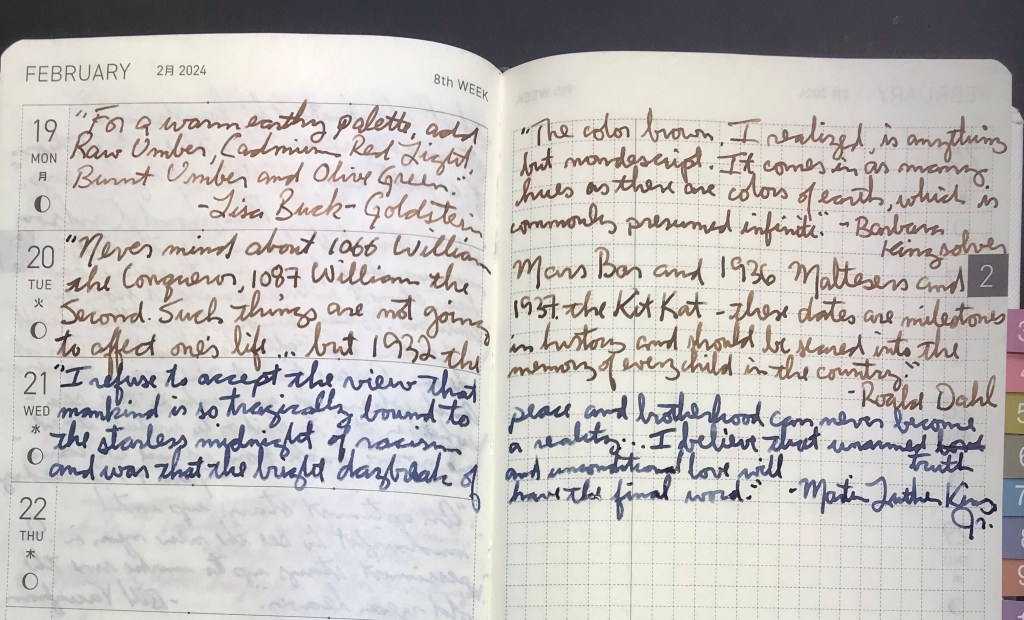 FEBRUARY 2月 2024
8th WEEK
19
MON
月
"For a warm earthy palette, add
Raw Umber, Cadmium Red Light,
Burnt Umber and Olive Green."
-Lisa Buck-Goldstein
20
TUE
火
"Never mind about 1066 William
the Conqueror, 1087 William the
Second. Such things are not going
to affect one's life... but 1932 the
21
WED
水
"I refuse to accept the view that
mankind is so tragically bound to
the starless midnight of racism
and war that the bright daybreak of
22
THU
木
"The color brown, I realized, is anything
but nondescript. It comes in as many
hues as there are colors of earth, which is
commonly presumed infinite." -Barbara
Kingsolver
Mars Bar and 1936 Maltesers and
1937 the Kit Kat - these dates are milestones
in history and should be seared into the
memory of every child in the country."
-Roald Dahl
2
peace and brotherhood can never become
a reality... I believe that unarmed
truth
and unconditional love will
have the final word." -Martin Luther King
Jr.
3
4
5
6
7
8
9